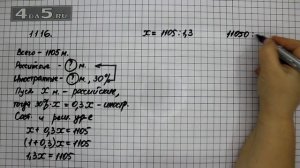 4DA5.RU
1116.
Всего - 1105 м.
Российские - ? м.
Иностранные - ? м., 30%
Пусть x м. - российских,
тогда 30% · x = 0,3x - иностр.
Сост. и реш. ур-е
x + 0,3x = 1105
(1 + 0,3)x = 1105
1,3x = 1105
x = 1105 : 1,3
11050 :